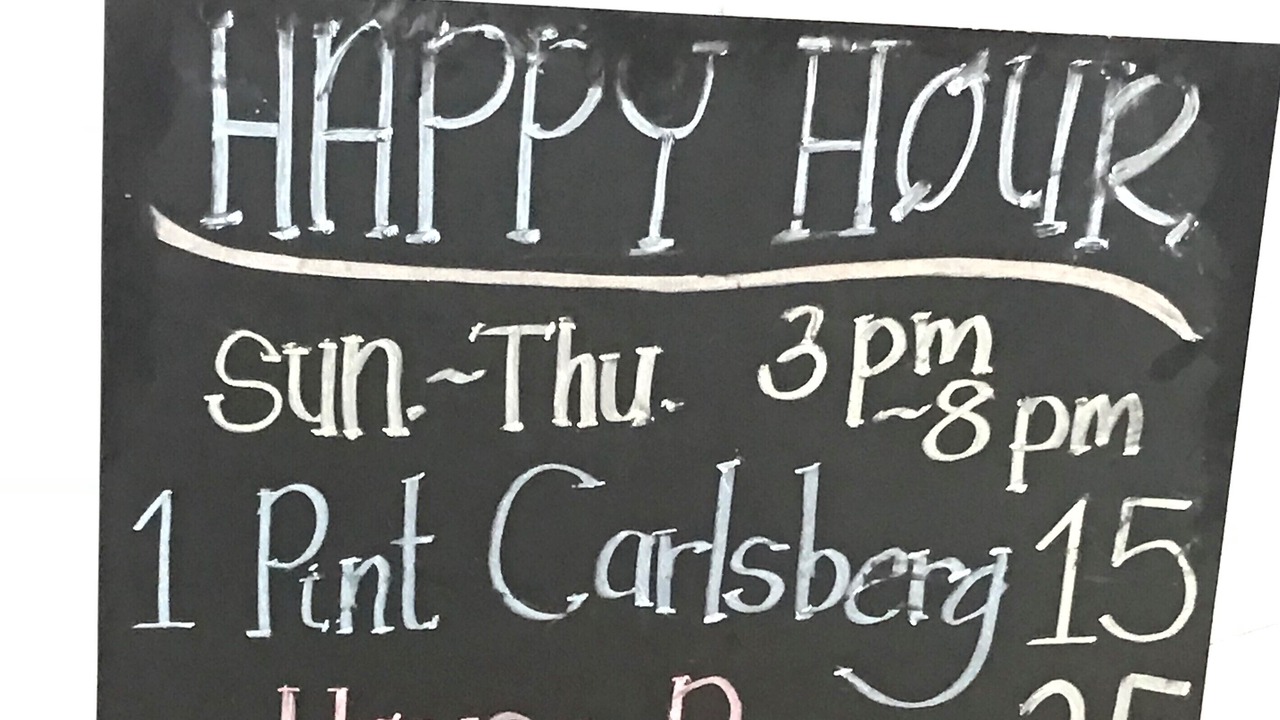 HAPPY HOUR
Sun.~Thu. 3pm
~8pm
1 Pint Carlsberg 15